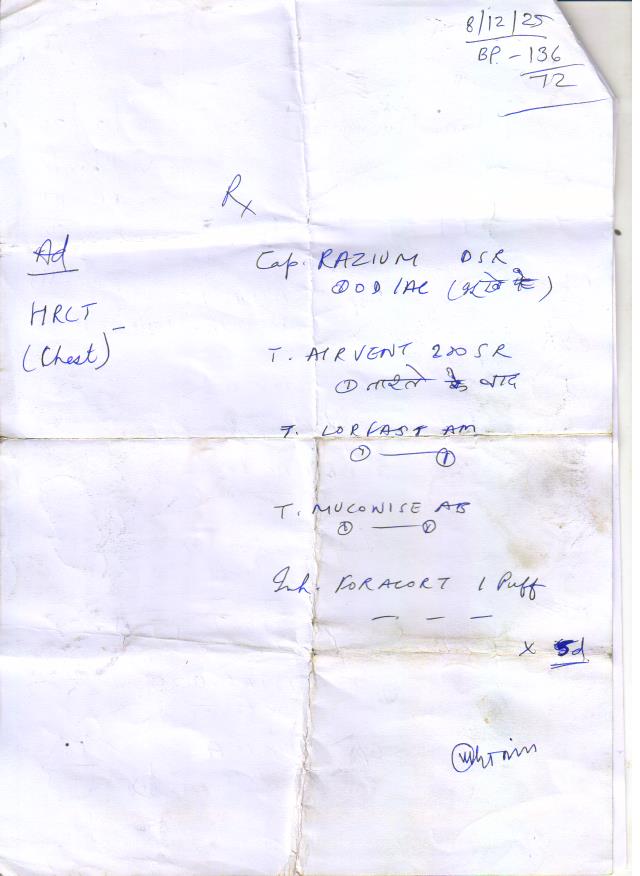 8/12/25
BP. - 136
72
Rx
Ad
HRCT
(Chest)
Cap. RAZIUM DSR
① OD / AC
T. AIRVENT 200 SR
① नाश्ते के बाद
T. LORFAST AM
① — ①
T. MUCOWISE AB
① — ①
Inh. FORACORT 1 Puff
— — —
x 5d